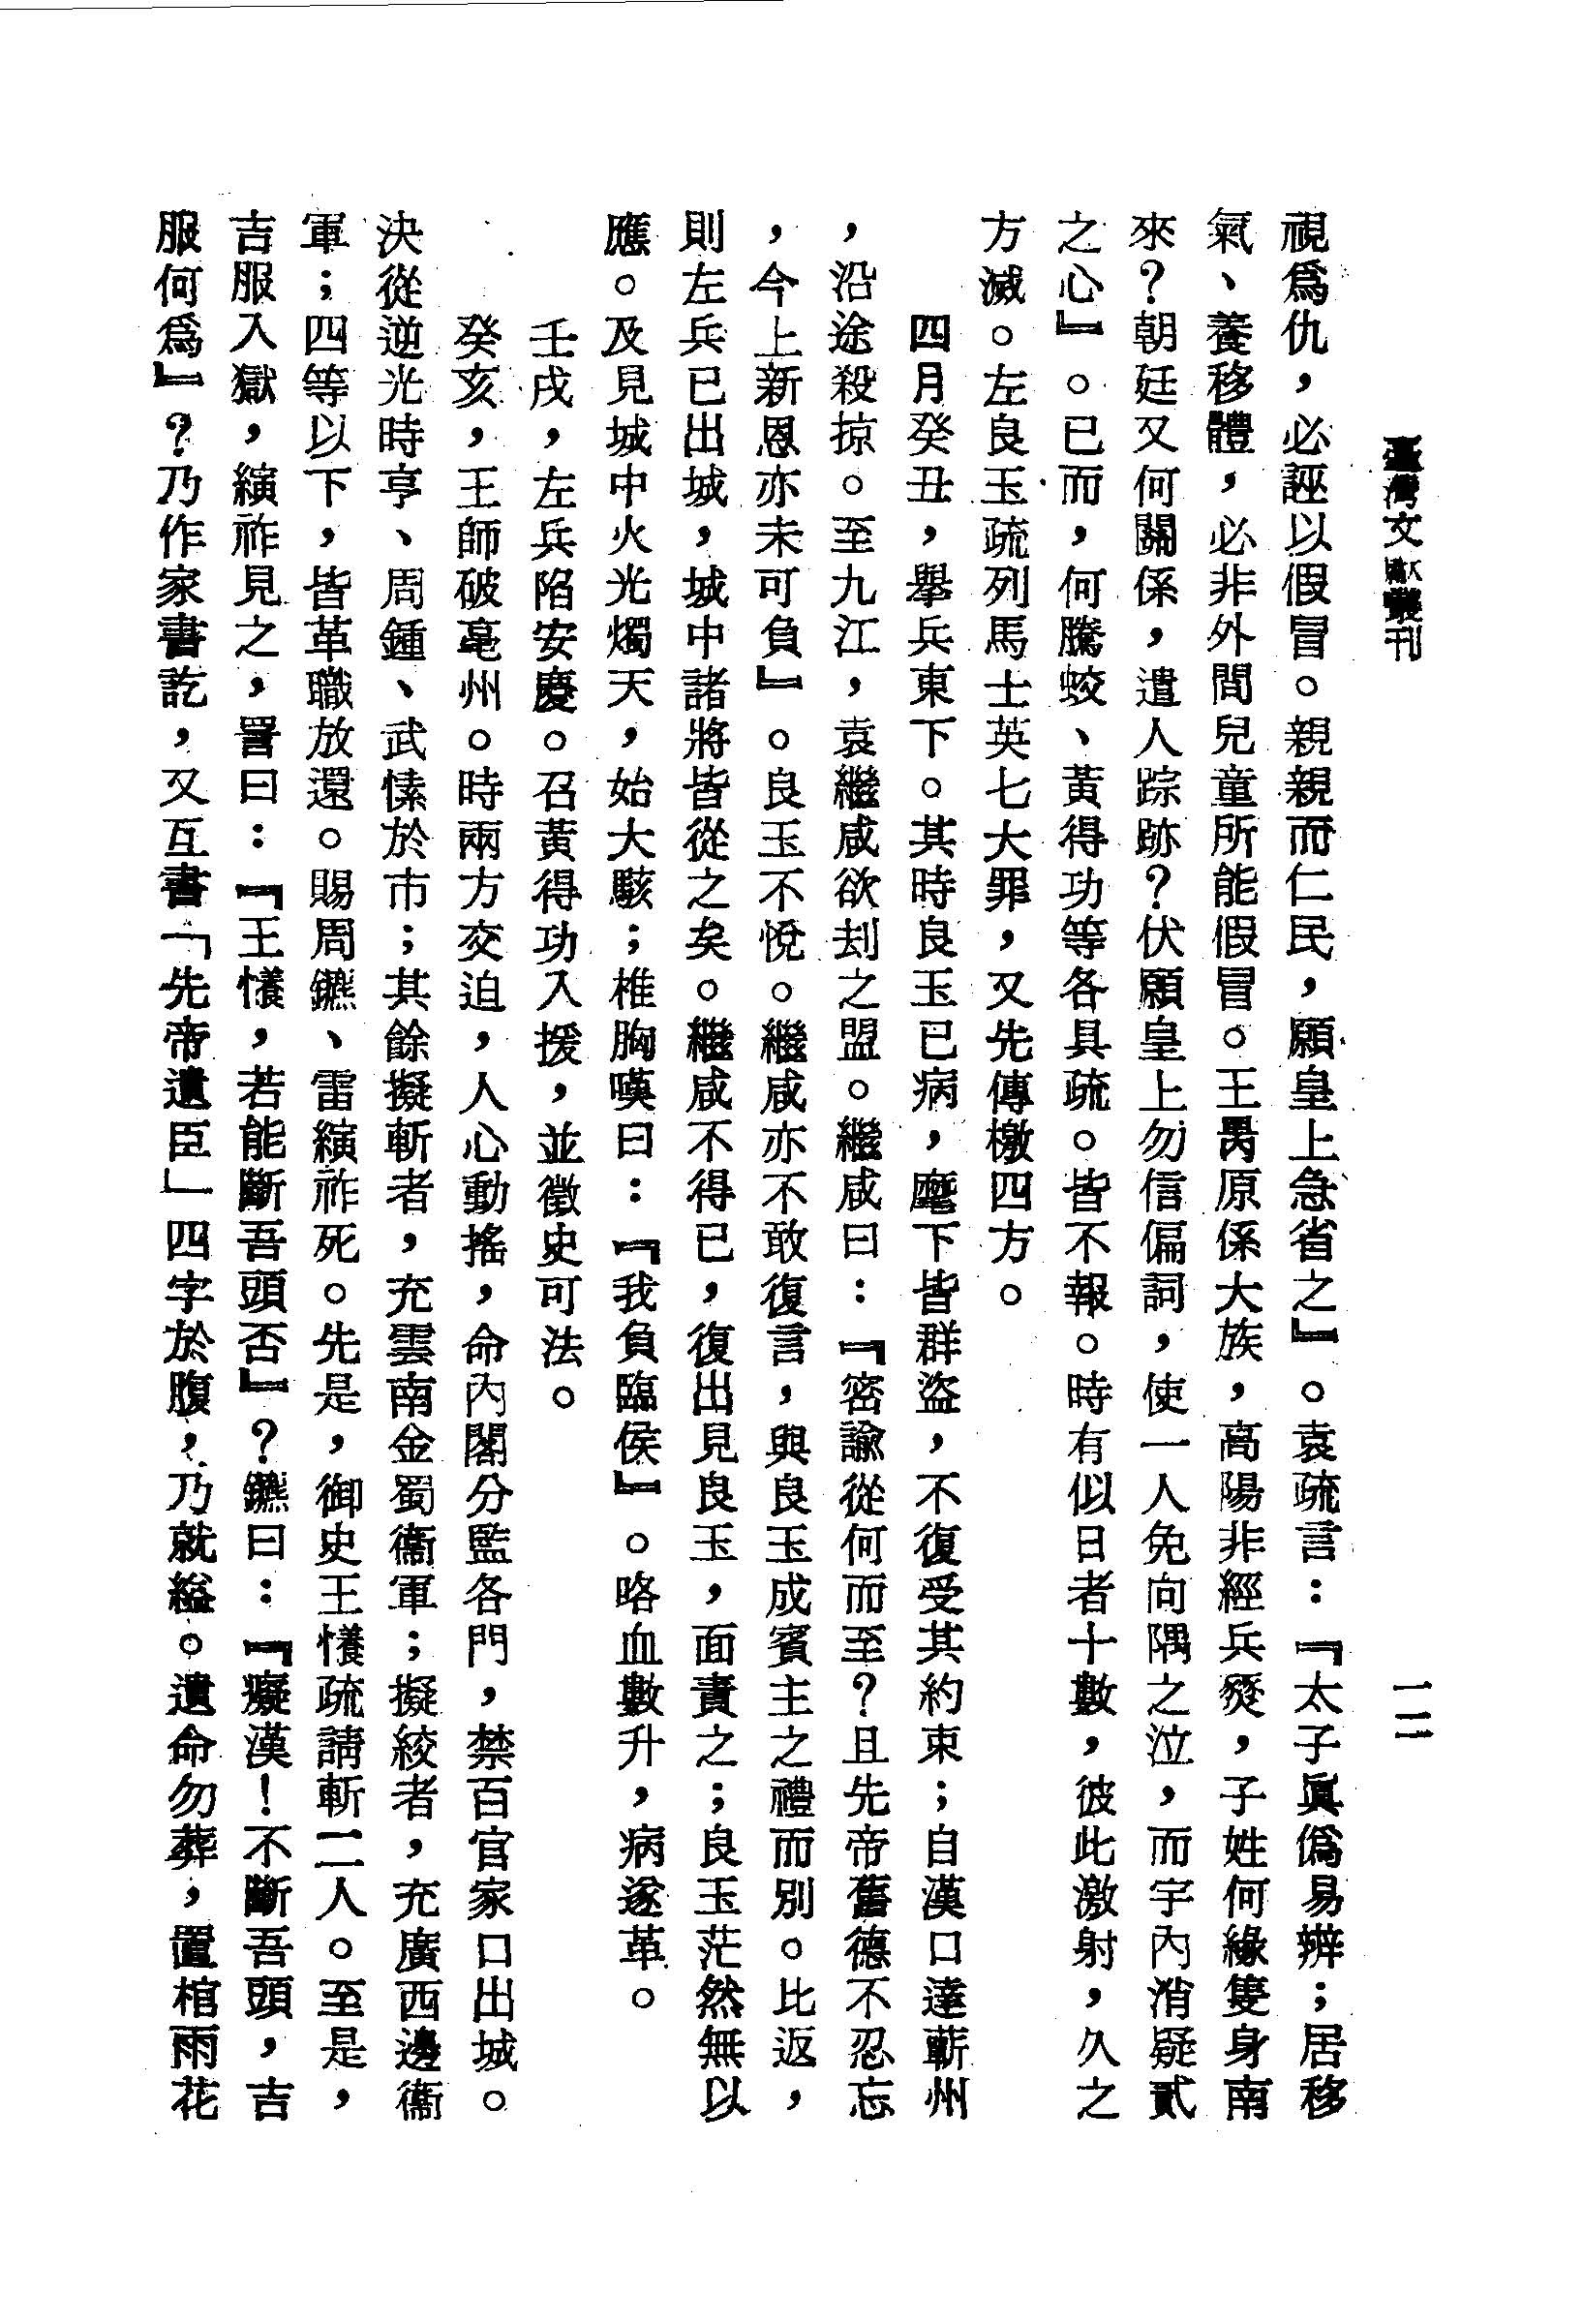 臺灣文獻叢刊
一二
視爲仇，必誣以假冒。親親而仁民，願皇上急省之』。袁疏言：『太子眞僞易辨；居移
氣、養移體，必非外間兒童所能假冒。王昺原係大族，高陽非經兵燹，子姓何緣隻身南
來？朝廷又何關係，遣人踪跡？伏願皇上勿信偏詞，使一人免向隅之泣，而宇內消疑貳
之心』。已而，何騰蛟、黃得功等各具疏。皆不報。時有似日者十數，彼此激射，久之
方滅。左良玉疏列馬士英七大罪，又先傳檄四方。
四月癸丑，舉兵東下。其時良玉已病，麾下皆群盜，不復受其約束；自漢口達蘄州
，沿途殺掠。至九江，袁繼咸欲刦之盟。繼咸曰：『密諭從何而至？且先帝舊德不忍忘
，今上新恩亦未可負』。良玉不悅。繼咸亦不敢復言，與良玉成賓主之禮而別。比返，
則左兵已出城，城中諸將皆從之矣。繼咸不得已，復出見良玉，面責之；良玉茫然無以
應。及見城中火光燭天，始大駭；椎胸嘆曰：『我負臨侯』。咯血數升，病遂革。
壬戌，左兵陷安慶。召黃得功入援，並徵史可法。
癸亥，王師破亳州。時兩方交迫，人心動搖，命內閣分監各門，禁百官家口出城。
決從逆光時亨、周鍾、武愫於市；其餘擬斬者，充雲南金蜀衞軍；擬絞者，充廣西邊衞
軍；四等以下，皆革職放還。賜周鑣、雷縯祚死。先是，御史王懩疏請斬二人。至是，
吉服入獄，縯祚見之，詈曰：『王懩，若能斷吾頭否』？鑣曰：『癡漢！不斷吾頭，吉
服何爲』？乃作家書訖，又互書「先帝遺臣」四字於腹，乃就縊。遺命勿葬，置棺雨花